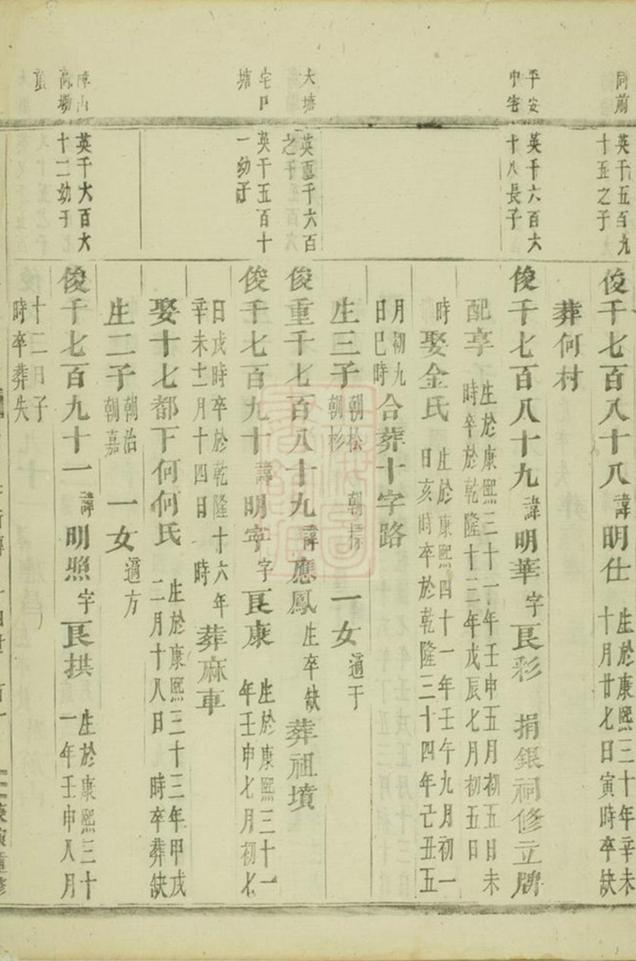 同前
英千五百九
十五之子
俊千七百八十八 諱明仕 生於康熙三十年辛未
十月廿七日寅時卒缺
葬何村
平安
中宅
英千六百六
十八長子
俊千七百八十九 諱明華 字良彩 捐銀祠修立牌
配享 生於康熙三十一年壬申五月初五日未
時卒於乾隆十三年戊辰七月初五日
時 娶金氏 生於康熙四十一年壬午九月初一
日亥時卒於乾隆三十四年亡丑五
月初九
日巳時 合葬十字路
生三子 朝松 朝
朝杉 一女 適于
大塘
英重千六百
之子
俊重千七百八十九 諱應鳳 生卒缺 葬祖墳
宅口
塘
英千五百十
一幼子
俊千七百九十 諱明寧 字良康 生於康熙三十一
年壬申七月初七
日戌時卒於乾隆十六年
辛未十二月十四日 時 葬麻車
娶十七都下何何氏 生於康熙三十三年甲戌
二月十八日 時卒葬缺
生二子 朝治
朝嘉 一女 適方
英千六百六
十二幼子
俊千七百九十一 諱明照 字良拱 生於康熙三十
一年壬申八月
十二日子
時卒葬失